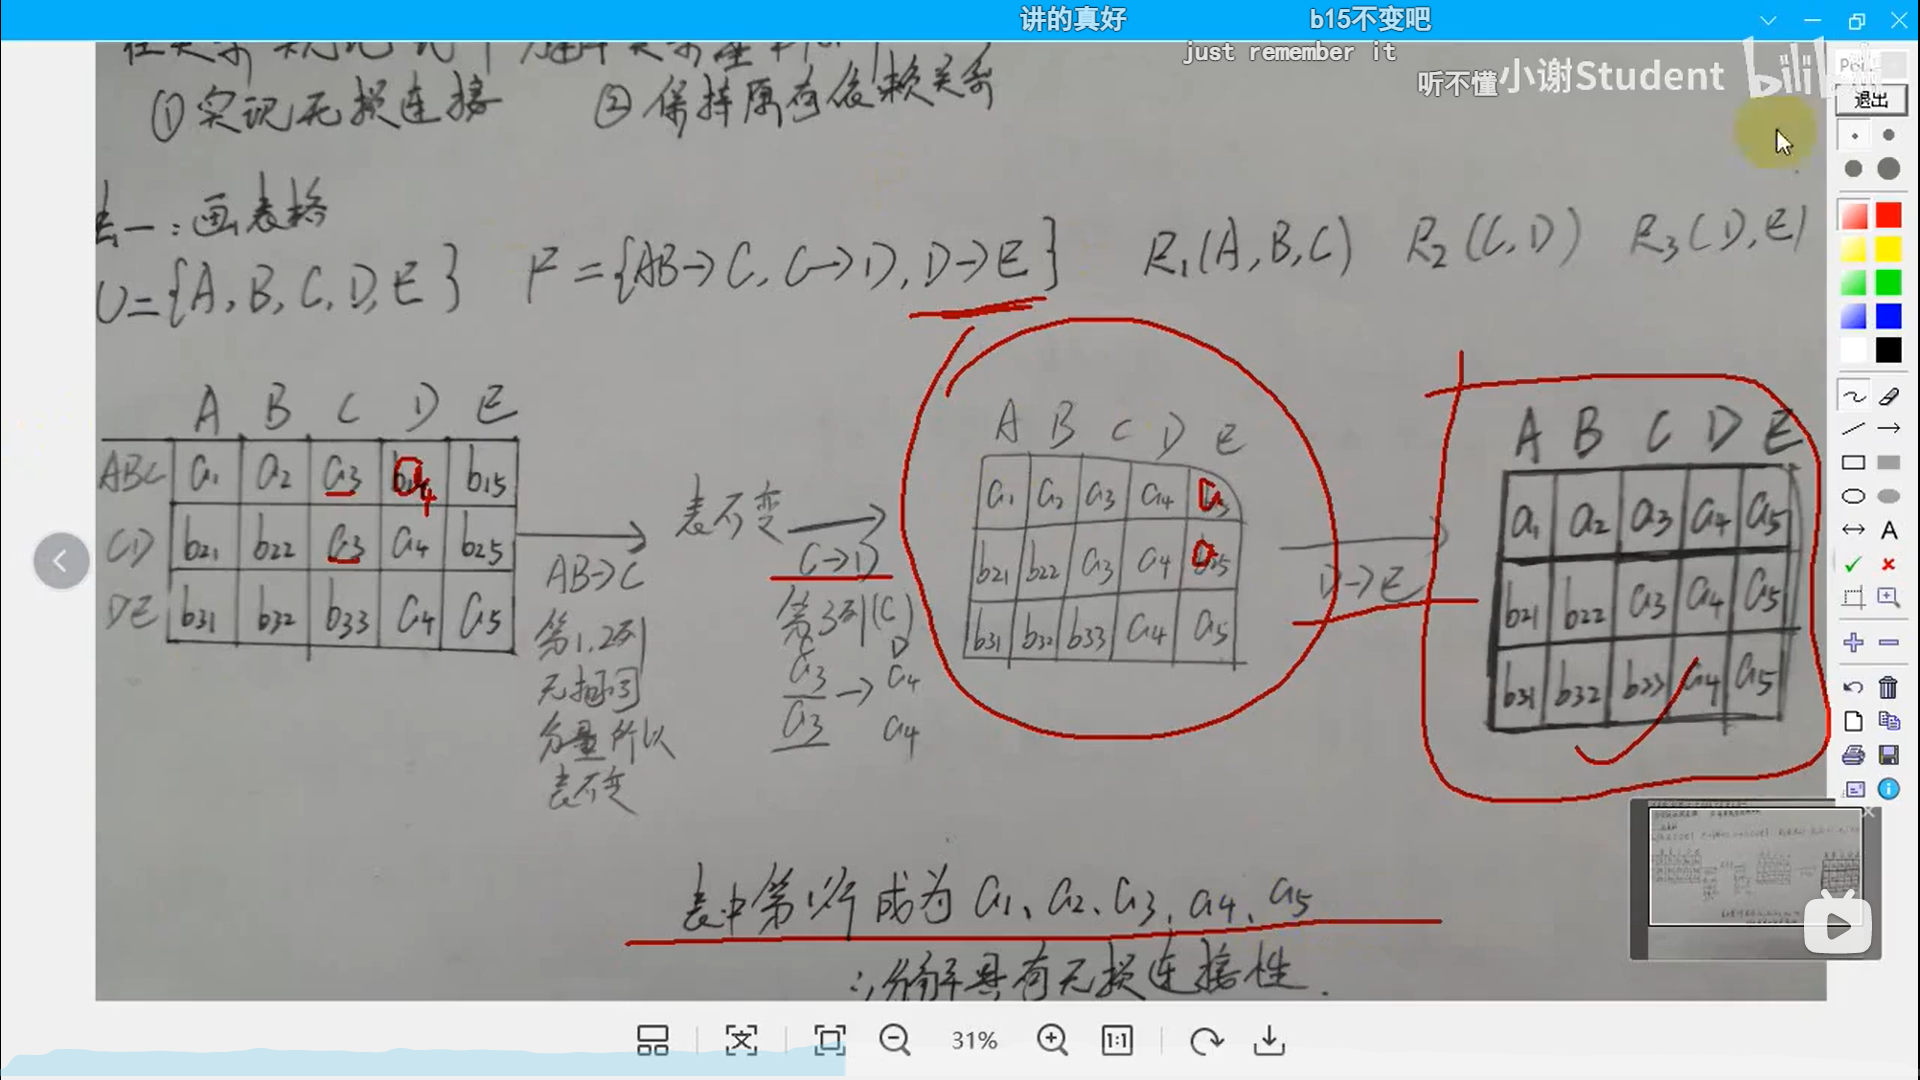 讲的真好 b15不变吧
just remember it
听不懂 小谢Student bilibili
退出
①实现无损连接 ②保持原有依赖关系
法一:画表格
U={A,B,C,D,E} F={AB→C,C→D,D→E} R₁(A,B,C) R₂(C,D) R₃(D,E)
A B C D E
ABC a₁ a₂ a₃ a₄ b₁₅
CD b₂₁ b₂₂ a₃ a₄ b₂₅
DE b₃₁ b₃₂ b₃₃ a₄ a₅
AB→C
第1,2列
无相同
分量所以
表不变
表不变
C→D
第3列(C)
D
a₃ → a₄
a₃ a₄
A B C D E
a₁ a₂ a₃ a₄ a₅
b₂₁ b₂₂ a₃ a₄ b₂₅
b₃₁ b₃₂ b₃₃ a₄ a₅
D→E
A B C D E
a₁ a₂ a₃ a₄ a₅
b₂₁ b₂₂ a₃ a₄ a₅
b₃₁ b₃₂ b₃₃ a₄ a₅
表中第1行成为a₁、a₂、a₃、a₄、a₅
∴分解具有无损连接性.
31%
1:1